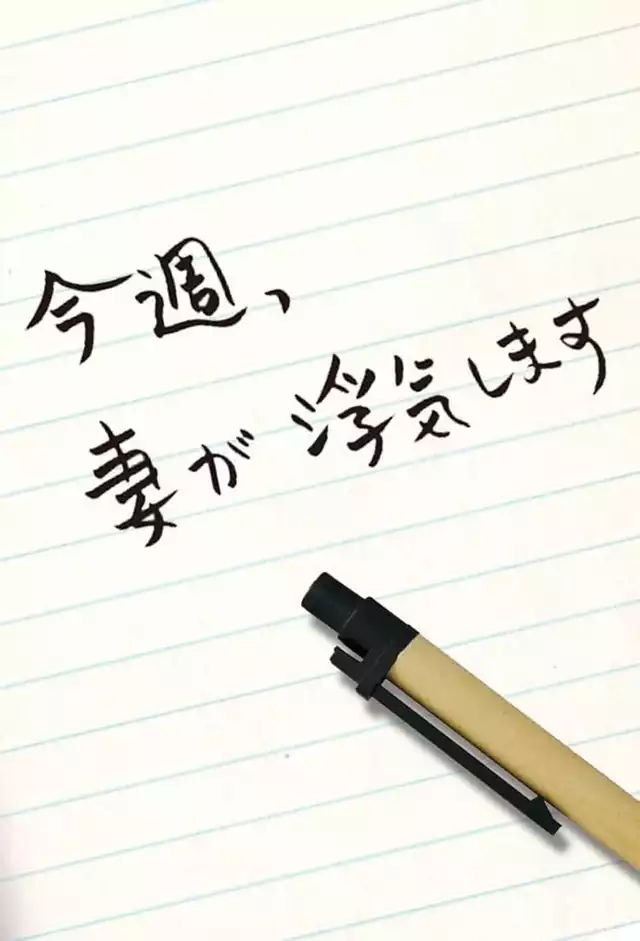 今週、
妻が浮気します